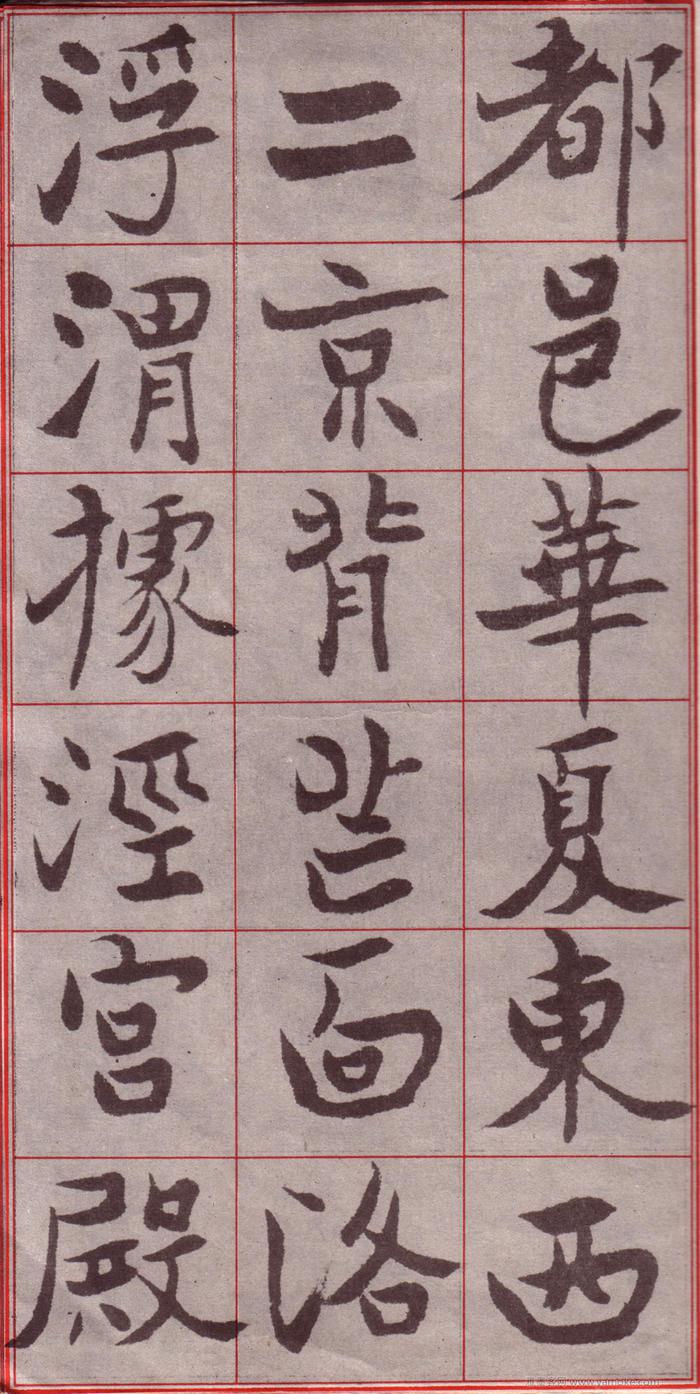 都邑華夏東西
二京背芒面洛
浮渭據涇宮殿